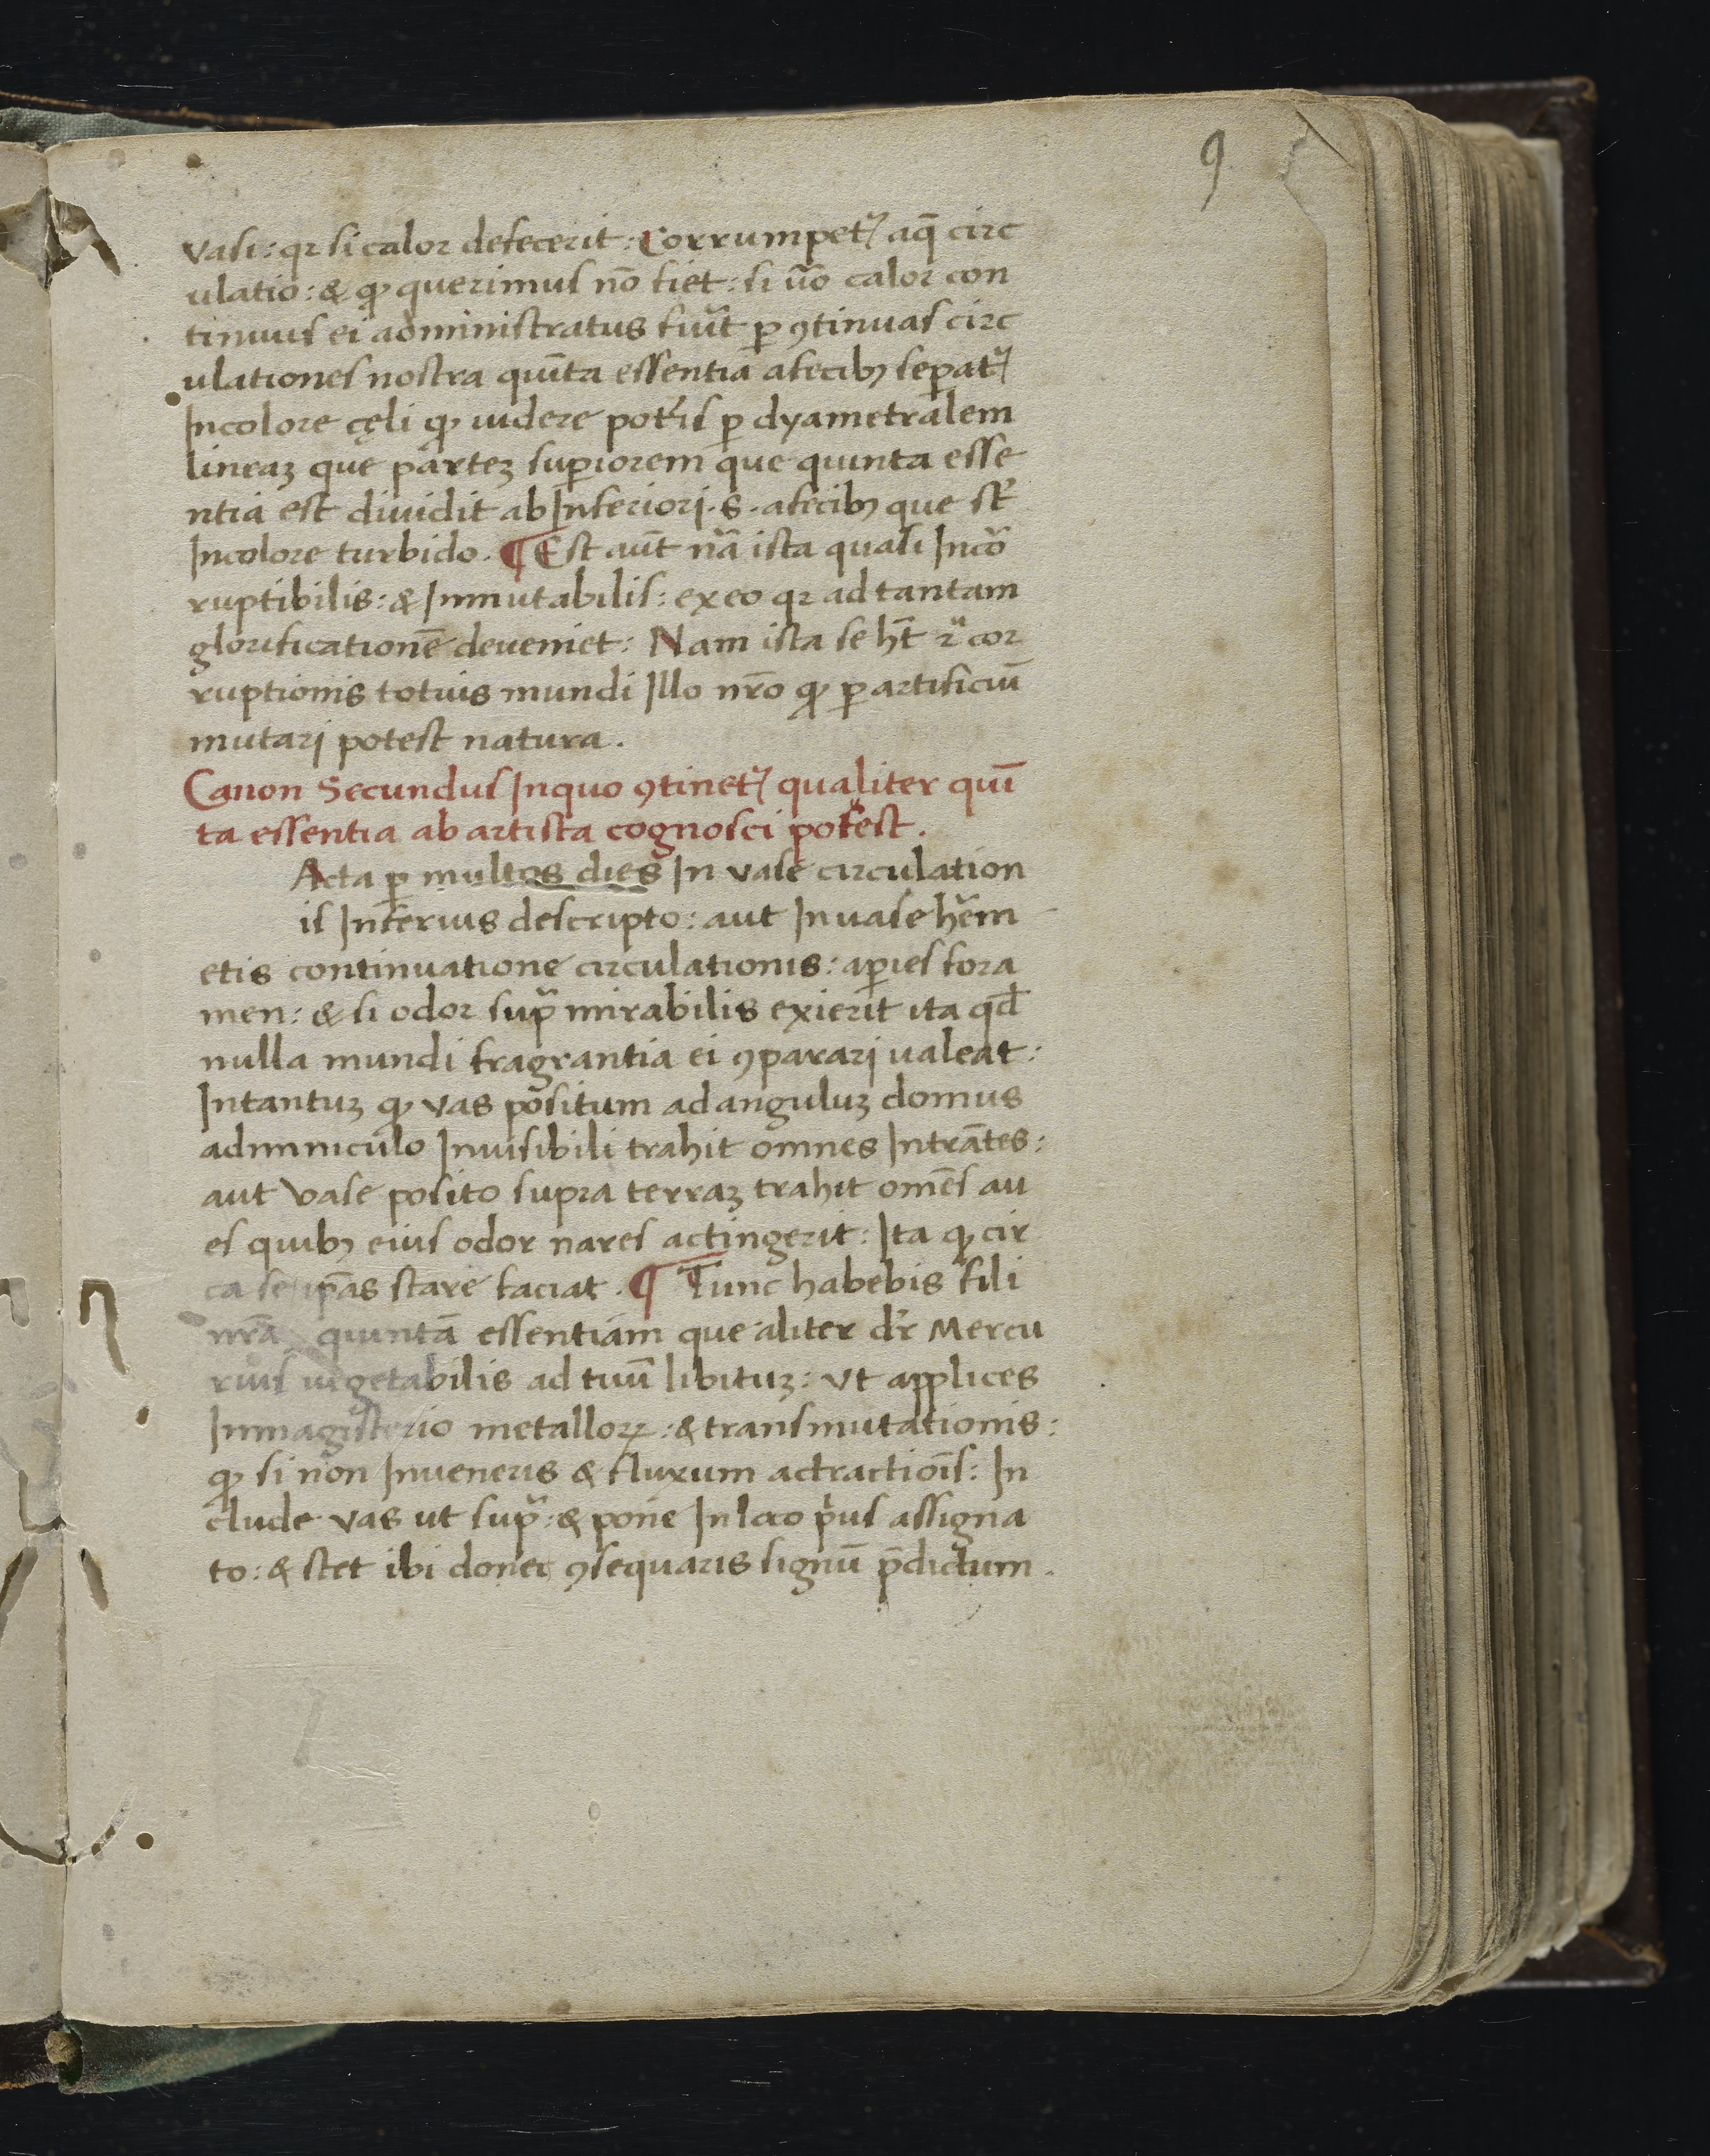 9
vasi: qꝛ si calor defecerit: Corrumpet᷑ aq̄ circ
ulatio: & qꝫ querimus nō fiet: si u͞o calor con
tinuus ei administratus fu͞it ꝑ ꝯtinuas circ
ulationes nostra quīta essentia afecibꝫ seꝑat᷑
Incolore cęli qꝫ uidere pot͛is ꝑ dyametralem
lineaꝫ que parteꝫ suꝑiorem que quinta esse
ntia est diuidit ab Inferiori .s. afecibꝫ que st͛
Incolore turbido. ¶ Est aūt nā ista quasi Incō
ruptibilis: & Inmutabilis: ex eo qꝛ ad tantam
glorificationē deueniet: Nam ista se h͞t rᷓ cor
ruptionis totius mundi Illo nr̄o qꝫ ꝑ artificiū
mutari potest natura.
Canon Secundus Inquo ꝯtinet᷑ qualiter quī
ta essentia ab artista cognosci potest.
Acta ꝑ multos dies In vase circulation
is Inferius descripto: aut In uase h͛m
etis continuatione circulationis: aꝑies fora
men: & si odor supᷓ mirabilis exierit ita qd̄
nulla mundi fragrantia ei ꝯparari ualeat:
Intantuꝫ qꝫ vas positum ad anguluꝫ domus
adminiculo Inuisibili trahit omnes Intrātes:
aut vase posito supra terraꝫ trahit omēs au
es quibꝫ eius odor nares actingerit: Ita qꝫ cir
ca se ip̄as stare faciat. ¶ Tunc habebis fili
nr̄ā quintā essentiam que aliter dr̄ Mercu
rius uegetabilis ad tuū libituꝫ: vt applices
Inmagisterio metalloꝝ: & transmutationis:
qꝫ si non Inueneris & fluxum actractiōis: In
clude vas ut supᷓ: & pone In loco pͥus assigna
to: & stet ibi donec ꝯsequaris signū p̄dictum.